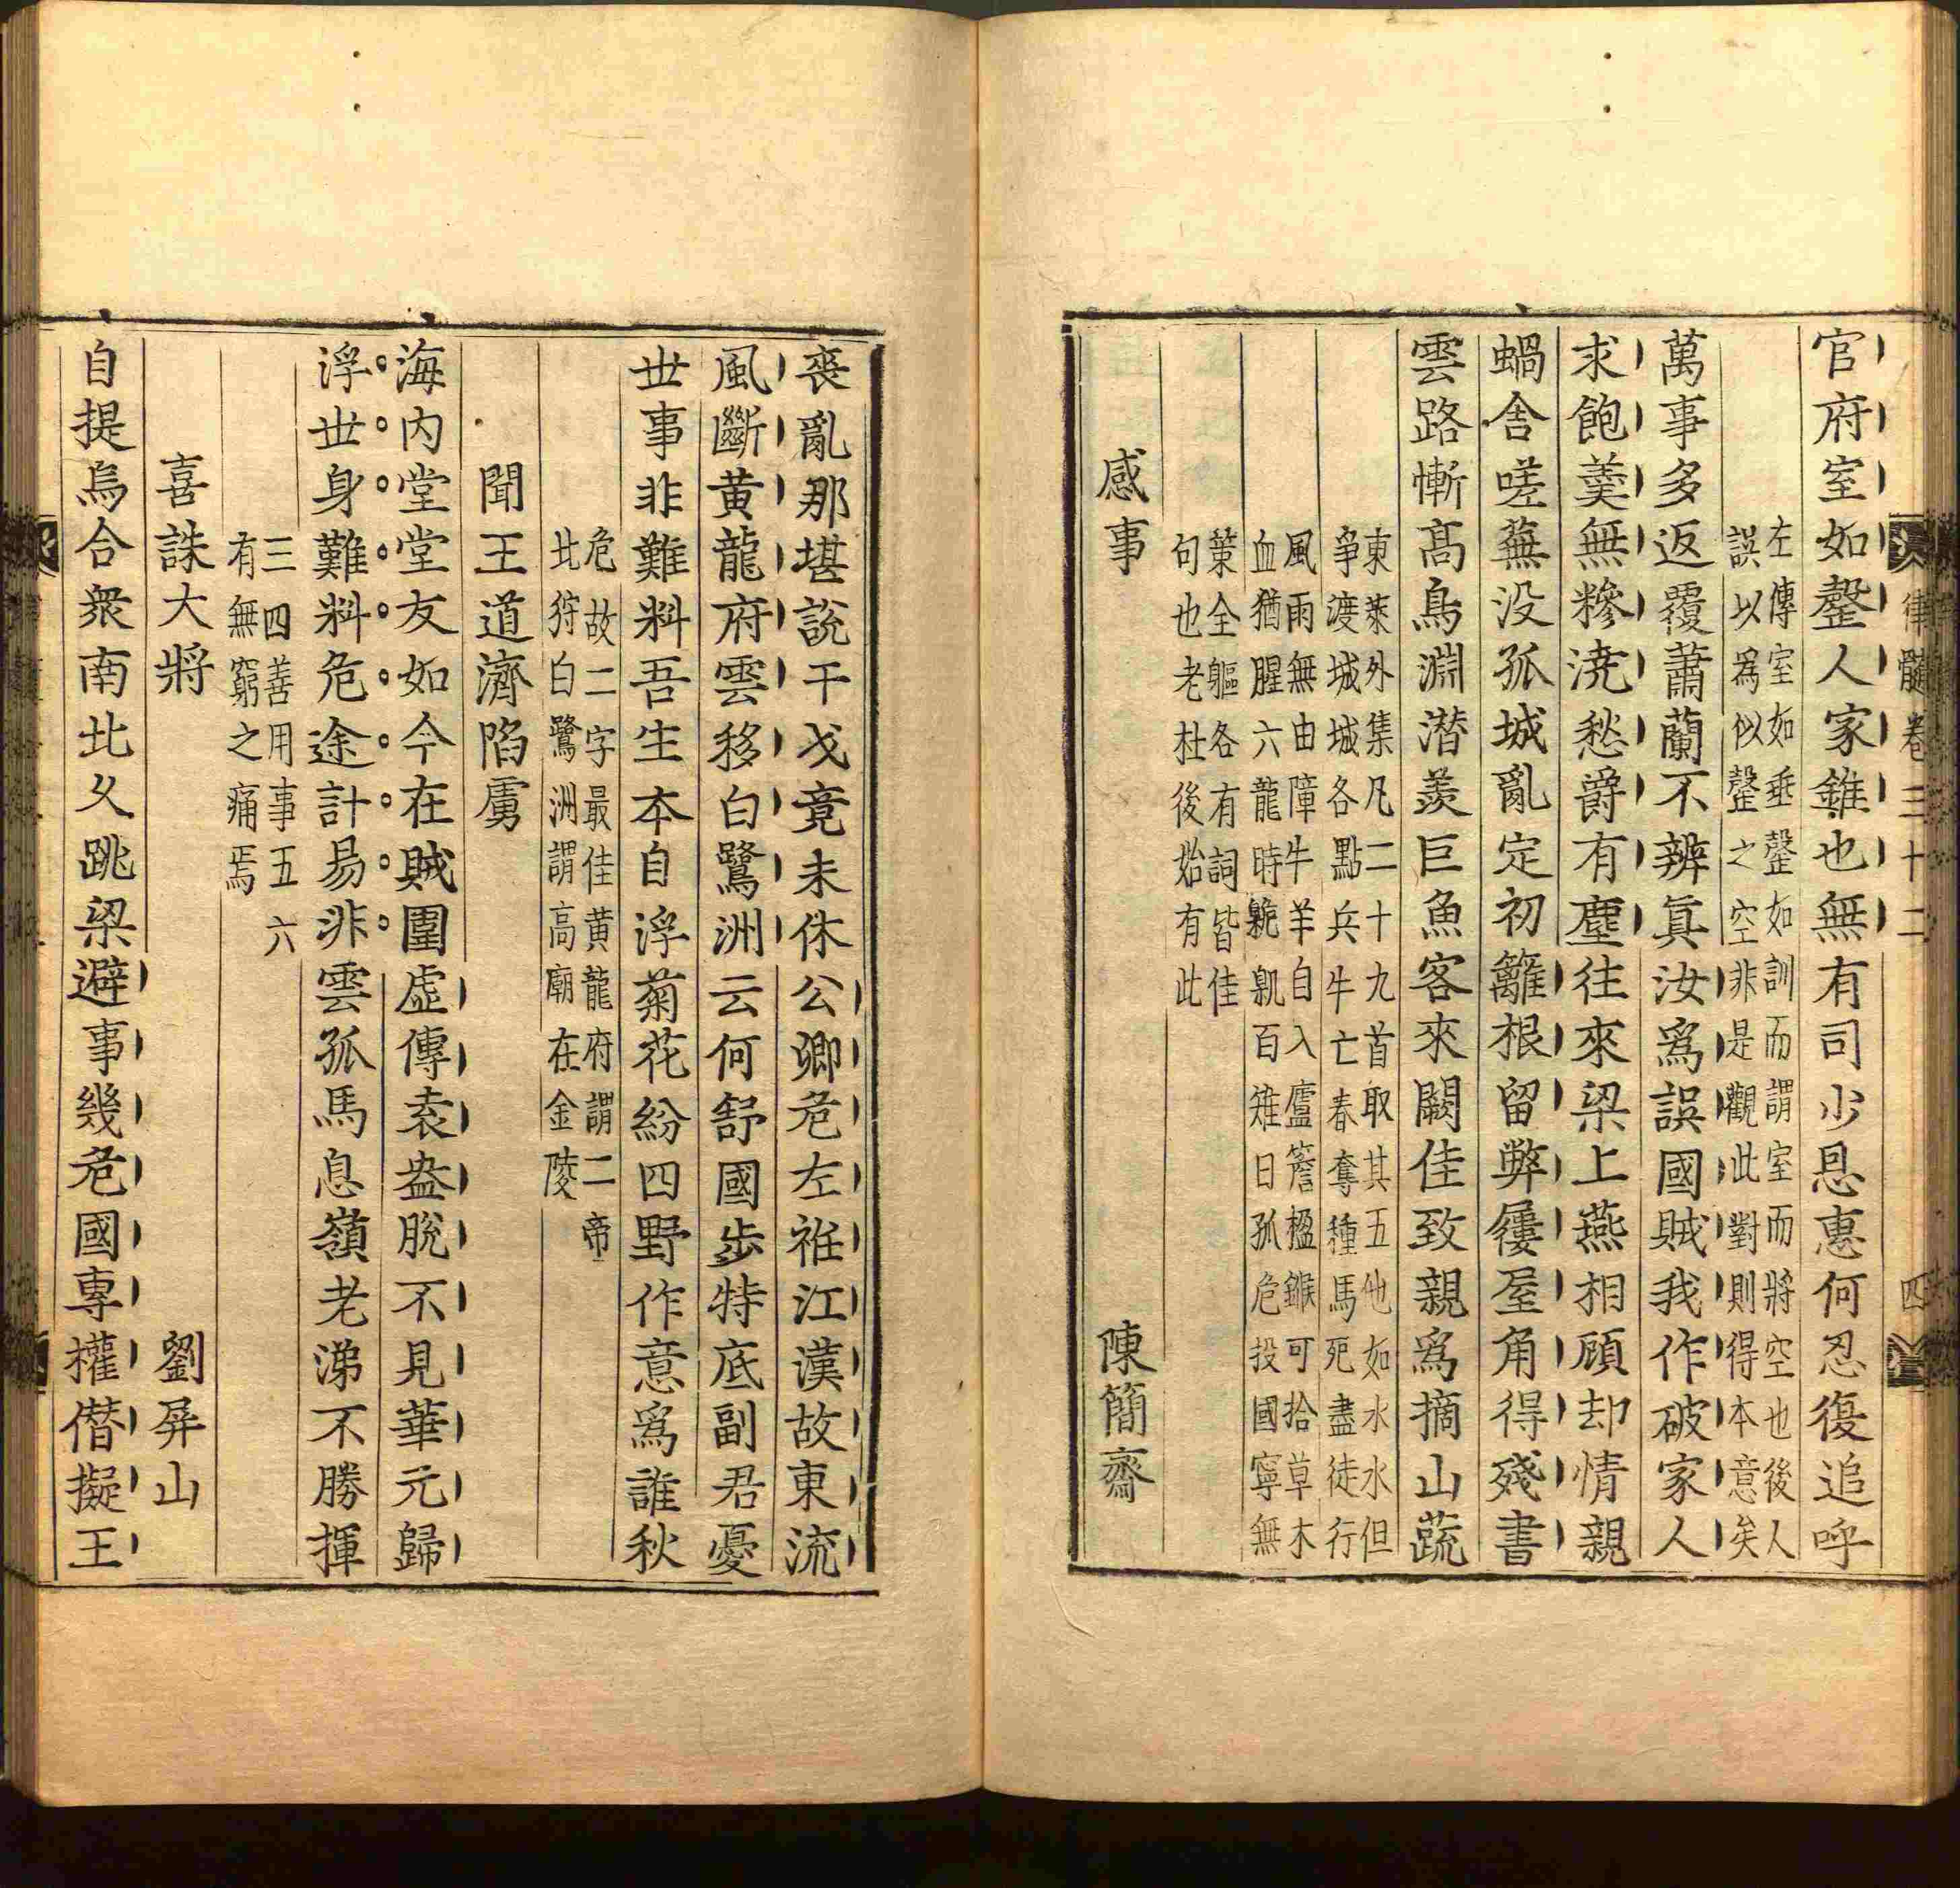 律髓卷三十二
四
官府室如罄人家錐也無有司少恩惠何忍復追呼
左傳室如垂罄如訓而謂室而將空也後人
誤以爲似罄之空非是觀此對則得本意矣
萬事多返覆蕭蘭不辨眞汝爲誤國賊我作破家人
求飽羹無糝澆愁爵有塵往來梁上燕相顧却情親
蝸舍嗟蕪没孤城亂定初籬根留弊屨屋角得殘書
雲路慚高鳥淵潜羨巨魚客來闕佳致親爲摘山蔬
東萊外集凡二十九首取其五他如水水但
争渡城城各點兵牛亡春奪種馬死盡徒行
風雨無由障牛羊自入廬簷楹鏃可拾草木
血猶腥六龍時臲卼百雉日孤危投國寧無
策全軀各有詞皆佳
句也老杜後始有此
感事　陳簡齋
喪亂那堪說干戈竟未休公卿危左衽江漢故東流
風斷黄龍府雲移白鷺洲云何舒國步特底副君憂
世事非難料吾生本自浮菊花紛四野作意爲誰秋
危故二字最佳黄龍府謂二帝
北狩白鷺洲謂高廟在金陵
聞王道濟陷虜
海内堂堂友如今在賊圍虛傳袁盎脫不見華元歸
浮世身難料危途計易非雲孤馬息嶺老涕不勝揮
三四善用事五六
有無窮之痛焉
喜誅大將　劉屏山
自提烏合衆南北久跳梁避事幾危國專權僣擬王